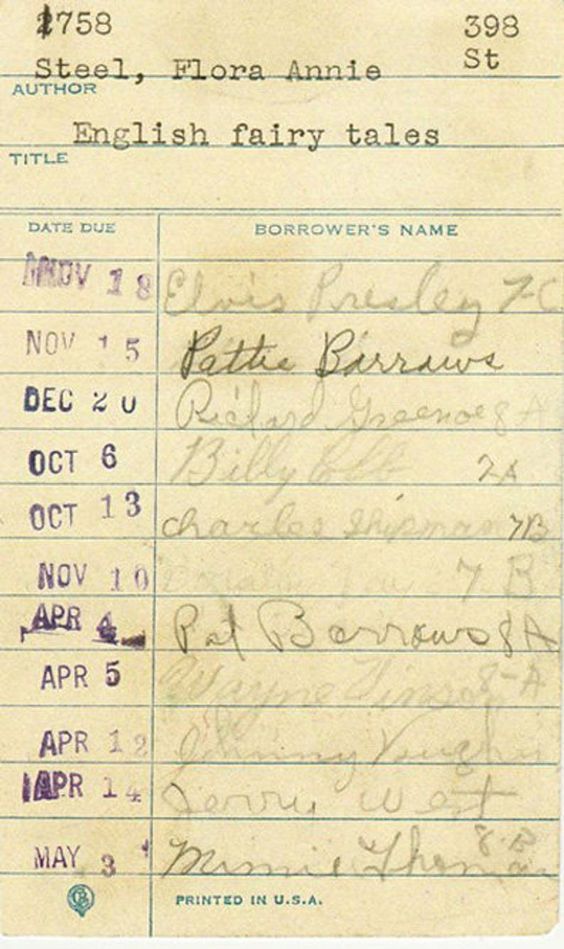 1758 398
St
Steel, Flora Annie
AUTHOR
English fairy tales
TITLE
DATE DUE BORROWER'S NAME
NOV 18 Elvis Presley 7-C
NOV 15 Pattie Barrows
DEC 20 Richard 8A
OCT 6 Billy
OCT 13 Charles Shipman 7B
NOV 10 7 B
APR 4 Pat Barrows 8A
APR 5 Wayne Vinson 8-A
APR 12 Johnny Vaughn
APR 14 Jerry West
8-B
MAY 3 Minnie Thomas
PRINTED IN U.S.A.